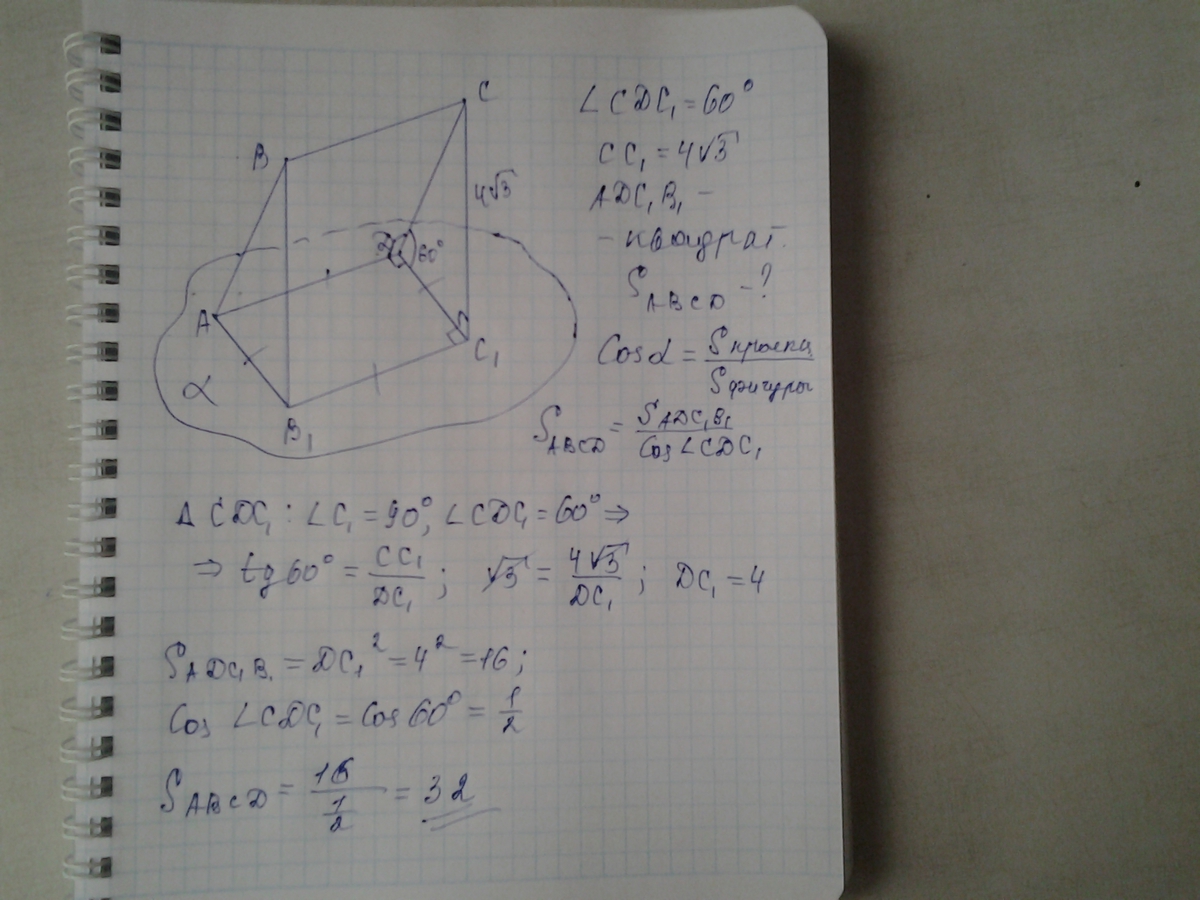 C
B
4√3
D
60°
A
C₁
α
B₁
∠CDC₁ = 60°
CC₁ = 4√3
ADC₁B₁ –
– квадрат.
S_ABCD – ?
Cos α = S проекц / S фигуры
S_ABCD = S_ADC₁B₁ / Cos ∠CDC₁
Δ CDC₁ : ∠C₁ = 90°, ∠CDC₁ = 60° ⇒
⇒ tg 60° = CC₁ / DC₁ ; √3 = 4√3 / DC₁ ; DC₁ = 4
S_ADC₁B₁ = DC₁² = 4² = 16 ;
Cos ∠CDC₁ = Cos 60° = 1/2
S_ABCD = 16 / (1/2) = 32